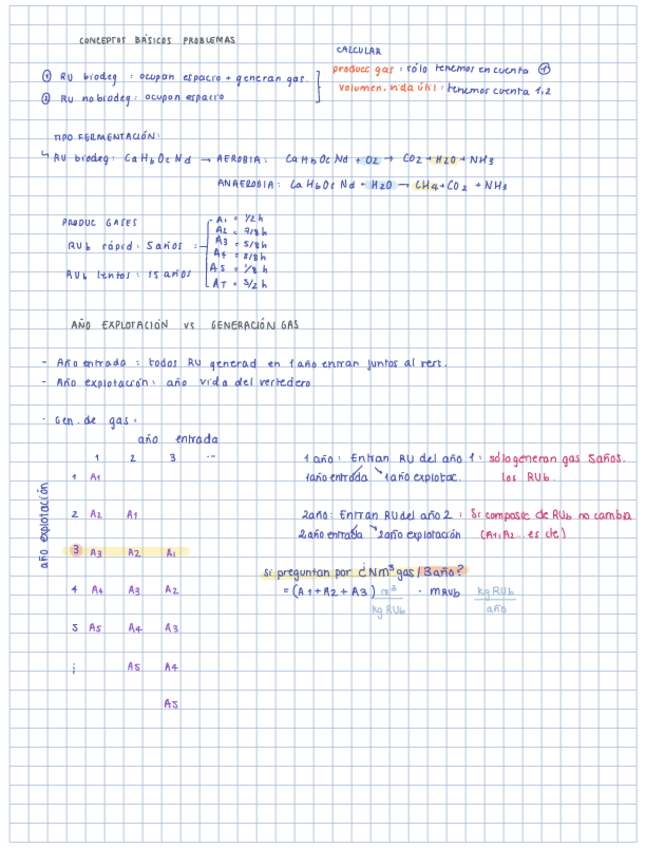 CONCEPTOS BÁSICOS PROBLEMAS
CALCULAR
① RU biodeg : ocupan espacio + generan gas.
producc gas : sólo tenemos en cuenta ①
② RU no biodeg : ocupan espacio
volumen, vida útil : tenemos cuenta 1,2
TIPO FERMENTACIÓN:
↳ RU biodeg: CaHbOcNd → AEROBIA: CaHbOcNd + O2 → CO2 + H2O + NH3
ANAEROBIA: CaHbOcNd + H2O → CH4 + CO2 + NH3
PRODUC GASES
RUb rápid: 5 años :
RUb lentos : 15 años
A1 = 1/2 h
A2 = 7/8 h
A3 = 5/8 h
A4 = 3/8 h
A5 = 1/8 h
AT = 5/2 h
AÑO EXPLOTACIÓN vs GENERACIÓN GAS
- Año entrada : todos RU generad en 1 año entran juntos al vert.
- Año explotación: año vida del vertedero
- Gen. de gas :
año entrada
1 2 3 ...
año explotación
1 A1
2 A2 A1
3 A3 A2 A1
4 A4 A3 A2
5 A5 A4 A3
⋮ A5 A4
A5
1 año : Entran RU del año 1 : sólo generan gas 5 años.
1 año entrada 1 año explotac. los RUb.
2 año: Entran RU del año 2 : Si composic de RUb no cambia
2 año entrada 2 año explotación (A1, A2... es cte)
Si preguntan por ¿Nm³ gas / 3 año?
= (A1 + A2 + A3) m³/kg RUb · mRUb kg RUb/año